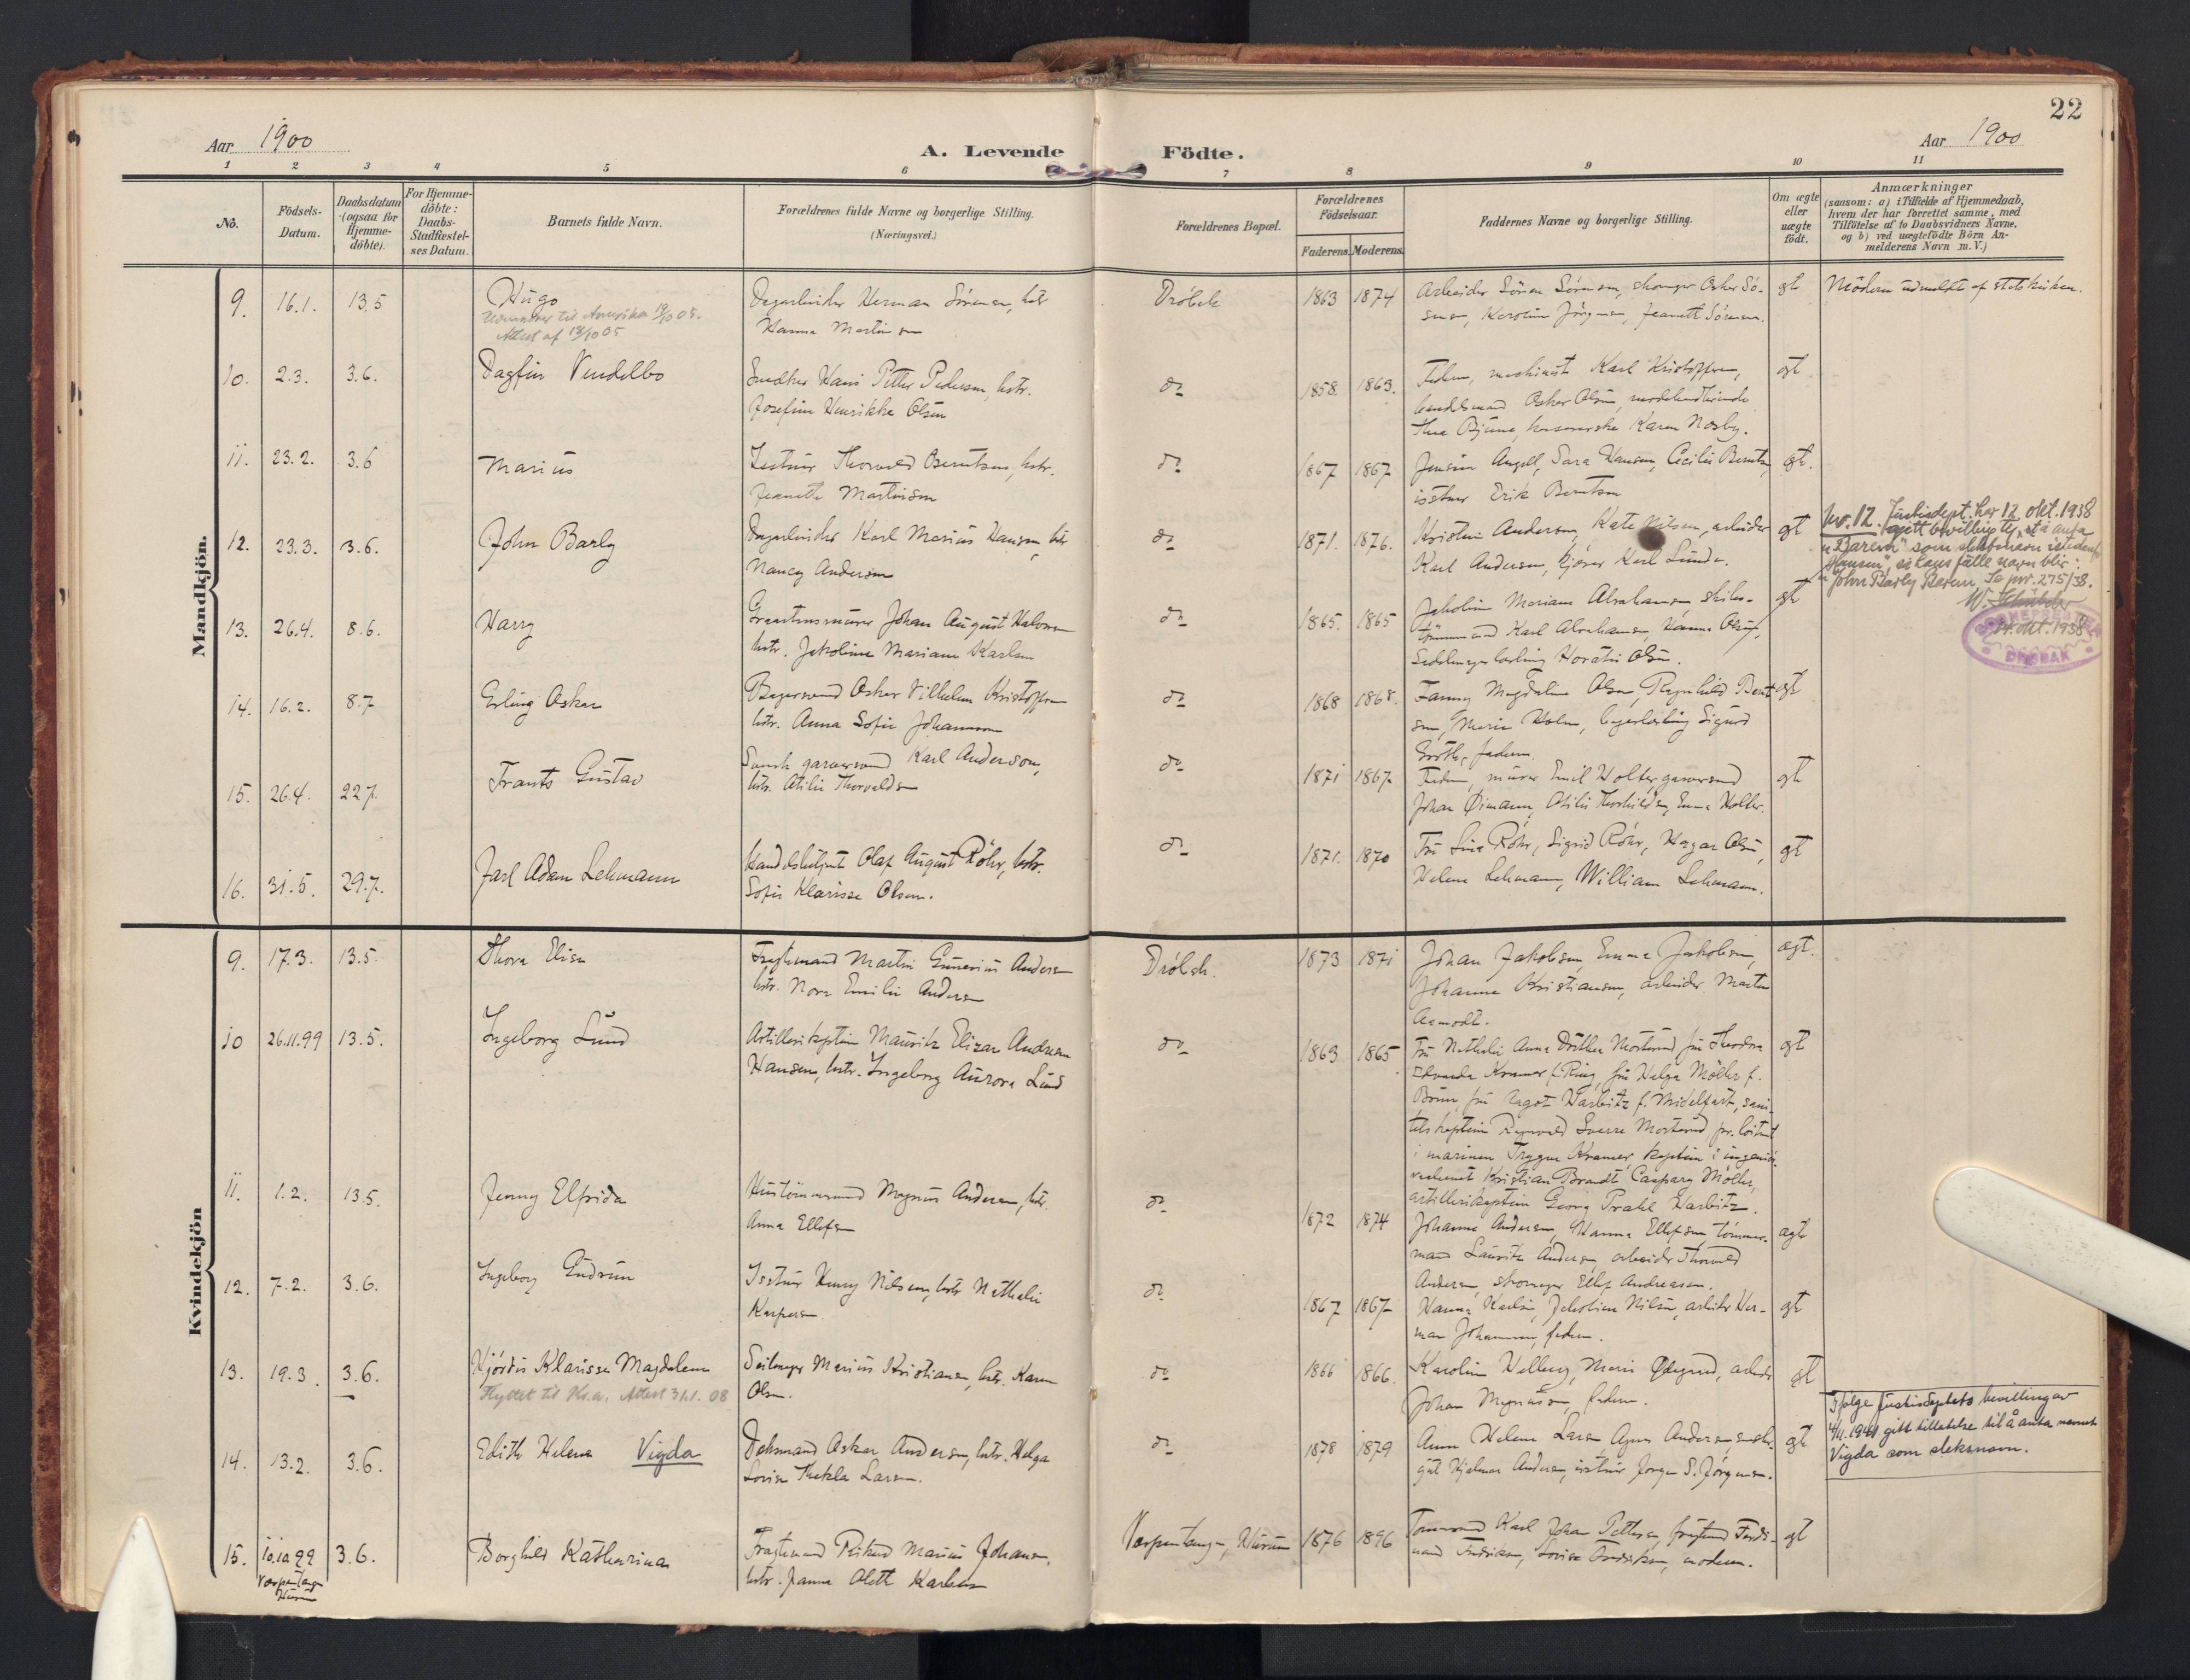 22
Aar 1900
A. Levende Födte.
Aar 1900
1 2 3 4 5 6 7 8 9 10 11
No.
Födsels-
Datum.
Daabsdatum
(ogsaa for
Hjemme-
döbte).
For Hjemme-
döbte:
Daabs-
Stadfæstel-
ses Datum.
Barnets fulde Navn.
Forældrenes fulde Navne og borgerlige Stilling.
(Næringsvei.)
Forældrenes Bopæl.
Forældrenes
Födselsaar.
Faderens. Moderens.
Faddernes Navne og borgerlige Stilling.
Om ægte
eller
uægte
födt.
Anmærkninger
(saasom: a) i Tilfælde af Hjemmedaab,
hvem der har forrettet samme, med
Tilföielse af to Daabsvidners Navne,
og b) ved uægtefödte Börn An-
melderens Navn m. V.)
Mandkjön.
9. 16.1. 13.5 Hugo
Udvandrer til Amerika 12/10 05.
Attest af 12/10 05
Dagarbeider Herman Sörensen, hstr
Hanna Martinsen
Dröbak 1863 1874
Arbeider Sören Sörensen, skomager Oskar Sö-
rensen, Karoline Jörgensen, Jeanette Sörensen.
gt Moderen udmeldt af statskirken.
10. 2.3. 3.6. Dagfin Vendelbo
Snedker Hans Petter Pedersen, hstr.
Josefine Henrikke Olsen
do 1858. 1863.
Faderen, maskinist Karl Kristoffersen,
handelsmand Oskar Olsen,
Thea Bjerne, Karen Nosby.
gt
11. 23.2. 3.6 Marius
Isstuer Thorvald Berntsen, hstr.
Jeanette Martinsen
do 1867 1867
Jensine Angell, Sara Hansen, Cecilie Berntsen,
isstuer Erik Berntsen
gt.
12. 23.3. 3.6. John Barly
Dagarbeider Karl Marius Hansen, hstr
Nancy Andersen
do 1871. 1876.
Kristine Andersen, Kate Nilsen, arbeider
Karl Andersen, kjörer Karl Lunde.
gt
Nr. 12. Justisdept. har 12 okt. 1938
gitt bevilling til at å anta
"Bareun" som slektsnavn istedenf.
"Hansen", så hans fulle navn blir:
"John Barly Bareun. Se jnr. 275/38.
14. okt. 1938
DRØBAK
13. 26.4. 8.6. Harry
Johan August Halvorsen
hstr. Jakobine Mariane Karlsen
do 1865. 1865
Jakobine Mariane Abrahamsen, skibs-
tömmermand Karl Abrahamsen, Hanna Olsen,
Sadelmagerlærling Horatio Olsen.
gt
14. 16.2. 8.7 Erling Oskar
Bagersvend Oskar Vilhelm Kristoffersen
hstr. Anna Sofie Johannesen
do 1868 1868.
Fanny Magdalene Olsen, Ragnhild Bernt-
sen, Marie Holm, bagerlærling Sigurd
Gröthe, faderen.
gt
15. 26.4. 22.7. Frants Gustav
Svensk garversvend Karl Anderson,
hstr. Otilie Thorvaldsen
do 1871 1867
Faderen, murer Emil Holter, garversvend
Johan Öimann, Otilie Thorkildsen, Emma Holter.
gt
16. 31.5. 29.7. Jarl Adam Lehmann
Handelsbetjent Olaf August Röhr, hstr.
Sofie Klarisse Olsen.
do 1871. 1870
Fru Lina Röhr, Sigrid Röhr, Hagar Olsen,
Helene Lehmann, William Lehmann.
gt
Kvindekjön
9. 17.3. 13.5. Thora Elise
Fragtemand Martin Gunerius Andersen
hstr. Nora Emilie Andersen
Dröbak. 1873 1871
Johan Jakobsen, Emma Jakobsen,
Johanne Kristiansen, arbeider Martin
Aamodt.
ægt.
10 26.11.99 13.5. Ingeborg Lund
Artillerikaptein Mauritz Elizar Andreas
Hansen, hstr. Ingeborg Aurora Lund
do 1863 1865
Fru Nathalie Anna Dorthea Mosterud, fru Theodora
Edvarda Kramer f. Ring, fru Helga Möller f.
Bruun, fru Ragot Harbitz f. Midelfart, sani-
tetskaptein Ragnvald Sverre Mosterud, pr. löitnant
i marinen Trygve Kramer, kaptein i ingeniör-
væbenet Kristian Brandt Casparg Möller,
artillerikaptein Georg Prahl Harbitz.
gt
11. 1.2. 13.5. Jenny Elfrida
Hustömmermand Magnus Andersen, hstr.
Anna Ellefsen
do 1872 1874
Johanne Andersen, Hanna Ellefsen, tömmer-
mand Lauritz Andersen, arbeider Thorvald
Andersen, skomager Ellef Andreasen.
ægt
12. 7.2. 3.6. Ingeborg Gudrun
Isstuer Henry Nilsen, hstr Nathalie
Kaspersen
do 1867 1867
Hanna Karlsen, Jakobine Nilsen, arbeider Her-
man Johannesen, faderen.
gt
13. 19.3. 3.6. Hjördis Klarisse Magdalene
Flyttet til Kr.a. Attest 31.1.08
Seilmager Marius Kristiansen, hstr. Karen
Olsen.
do 1866 1866.
Karoline Welberg, Marie Ödegaard, arbeider
Johan Magnussen, faderen.
gt
14. 13.2. 3.6. Edith Helene Vigda
Dæksmand Oskar Andersen, hstr. Helga
Lovise Thekla Larsen.
do 1878 1879
Anna Helene Larsen, Agnes Andersen,
gut Hjalmar Andersen, isstuer Jörgen S. Jörgensen.
gt
Ifølge Justisdeptets bevilling av
4/11. 1941 gitt tillatelse til å anta navnet
Vigda som slektsnavn.
15. 10.10.99 3.6. Borghild Katharina
Værpentangen
Hurum
Fragtemand Rikard Marius Johansen,
hstr. Janna Olette Karlsen
Værpentangen, Hurum 1876 1896
Tömmermand Karl Johan Pettersen, Ferdi-
nand Fredriksen, Lovise Fredriksen, moderen.
gt